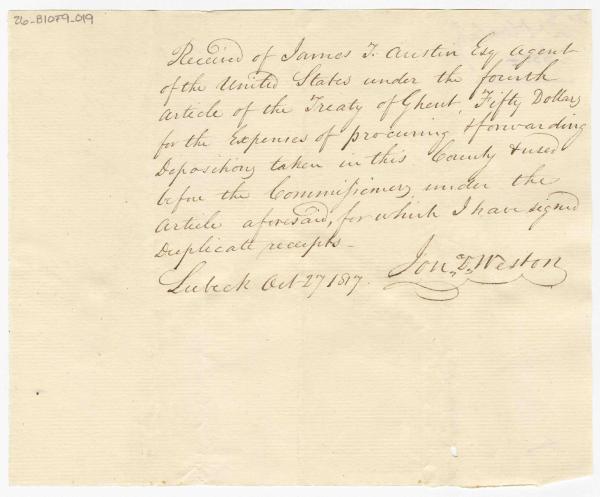 26-B1079-019
Received of James T. Austin Esq agent
of the United States under the fourth
article of the Treaty of Ghent, Fifty Dollars
for the Expenses of procuring & forwarding
Depositions taken in this County & used
before the Commissioners under the
Article aforesaid, for which I have signed
Duplicate receipts -
Lubeck Oct 27 1817. Jon. D. Weston